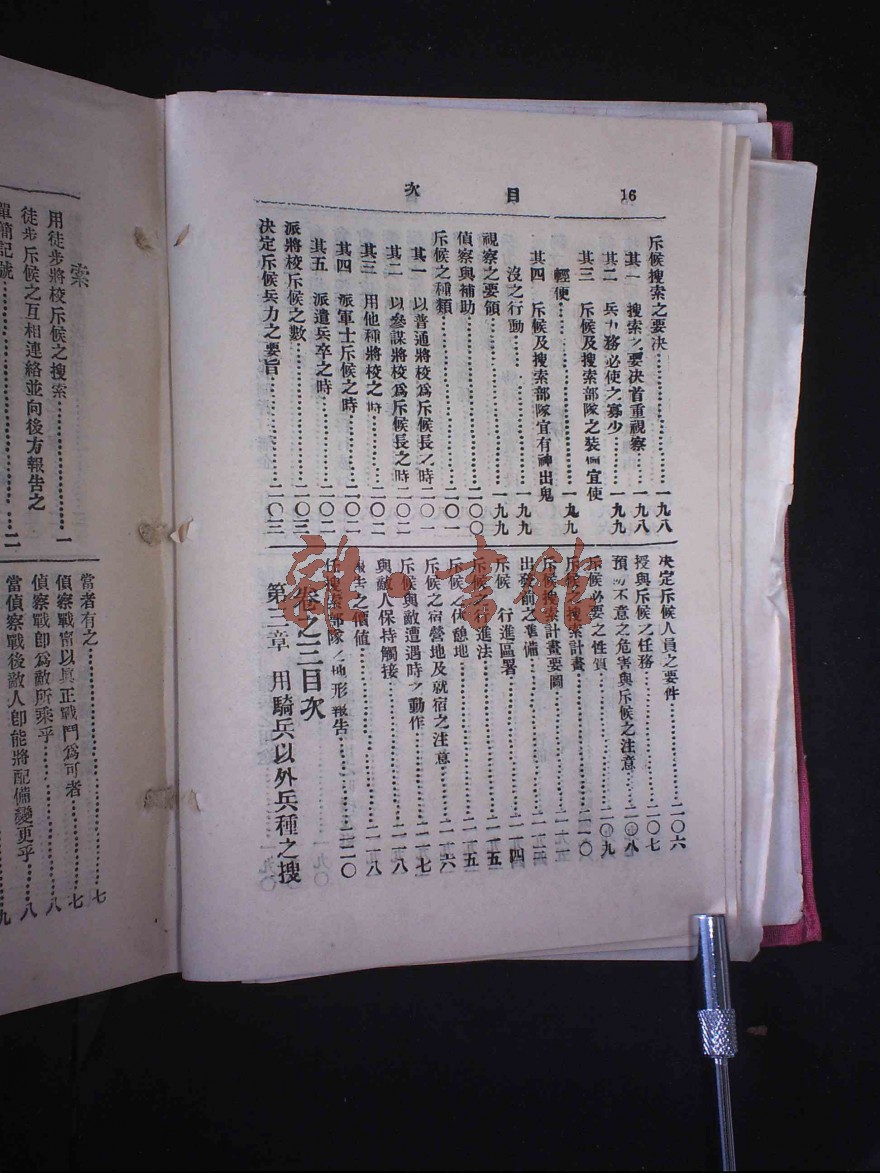 16 目次
斥候搜索之要決⋯⋯一九八
其一 搜索之要決首重視察⋯⋯一九八
其二 兵力務必使之寡少⋯⋯一九九
其三 斥候及搜索部隊之裝備宜使
輕便⋯⋯一九九
其四 斥候及搜索部隊宜有神出鬼
沒之行動⋯⋯一九九
視察之要領⋯⋯一九九
偵察與補助⋯⋯二〇〇
斥候之種類⋯⋯二〇一
其一 以普通將校爲斥候長之時⋯⋯二〇一
其二 以參謀將校爲斥候長之時⋯⋯二〇二
其三 用他種將校之時⋯⋯二〇二
其四 派軍士斥候之時⋯⋯二〇二
其五 派遣兵卒之時⋯⋯二〇二
派將校斥候之數⋯⋯二〇三
決定斥候兵力之要旨⋯⋯二〇三
決定斥候人員之要件⋯⋯二〇六
授與斥候之任務⋯⋯二〇七
預防不意之危害與斥候之注意⋯⋯二〇八
斥候必要之性質⋯⋯二〇九
斥候搜索計畫⋯⋯
斥候搜索計畫要圖⋯⋯
出發前之準備⋯⋯
斥候 行進區署⋯⋯二一四
斥候之行進法⋯⋯二一五
斥候之休憩地⋯⋯二一五
斥候之宿營地及就宿之注意⋯⋯二一六
斥候與敵遭遇時之動作⋯⋯二一七
與敵人保持觸接⋯⋯二一八
報告之價値⋯⋯二一八
任搜索部隊之地形報告⋯⋯二二〇
卷之三目次
第三章 用騎兵以外兵種之搜
索
用徒步將校斥候之搜索⋯⋯一
徒步斥候之互相連絡並向後方報告之
單簡記號⋯⋯二
當者有之⋯⋯七
偵察戰寧以眞正戰鬥爲可者⋯⋯七
偵察戰卽爲敵所乘乎⋯⋯八
當偵察戰後敵人卽能將配備變更乎⋯⋯八
九
雜·書館